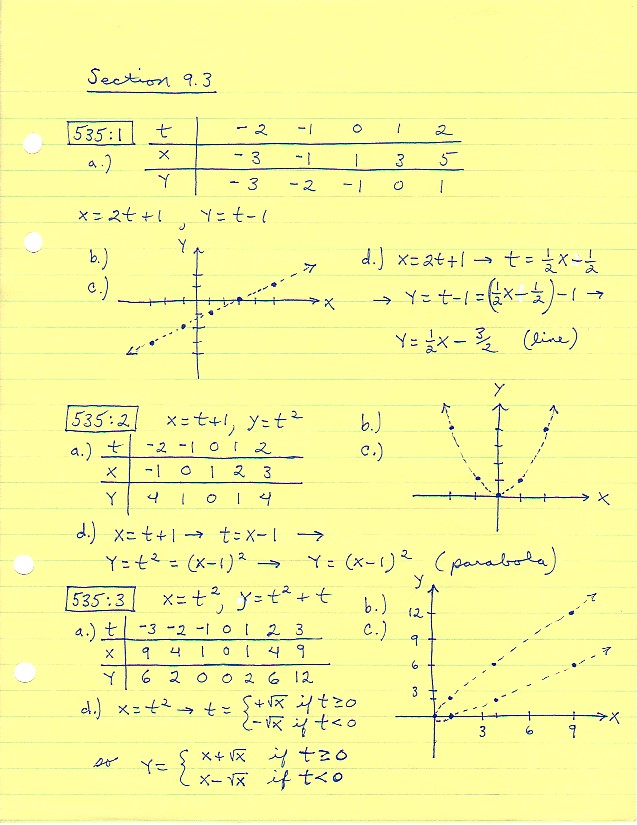 Section 9.3
535:1
a.)
t -2 -1 0 1 2
x -3 -1 1 3 5
Y -3 -2 -1 0 1
x=2t+1, Y=t-1
b.)
c.)
Y
x
d.) x=2t+1 → t=½x-½
→ Y=t-1=(½x-½)-1 →
Y=½x-3/2 (line)
535:2 x=t+1, y=t²
a.) t -2 -1 0 1 2
x -1 0 1 2 3
Y 4 1 0 1 4
b.)
c.)
Y
x
d.) x=t+1 → t=x-1 →
Y=t²=(x-1)² → Y=(x-1)² (parabola)
535:3 x=t², y=t²+t
a.) t -3 -2 -1 0 1 2 3
x 9 4 1 0 1 4 9
Y 6 2 0 0 2 6 12
b.)
c.)
y
12
9
6
3
3 6 9
x
d.) x=t² → t= { +√x if t≥0
-√x if t<0
so Y= { x+√x if t≥0
x-√x if t<0